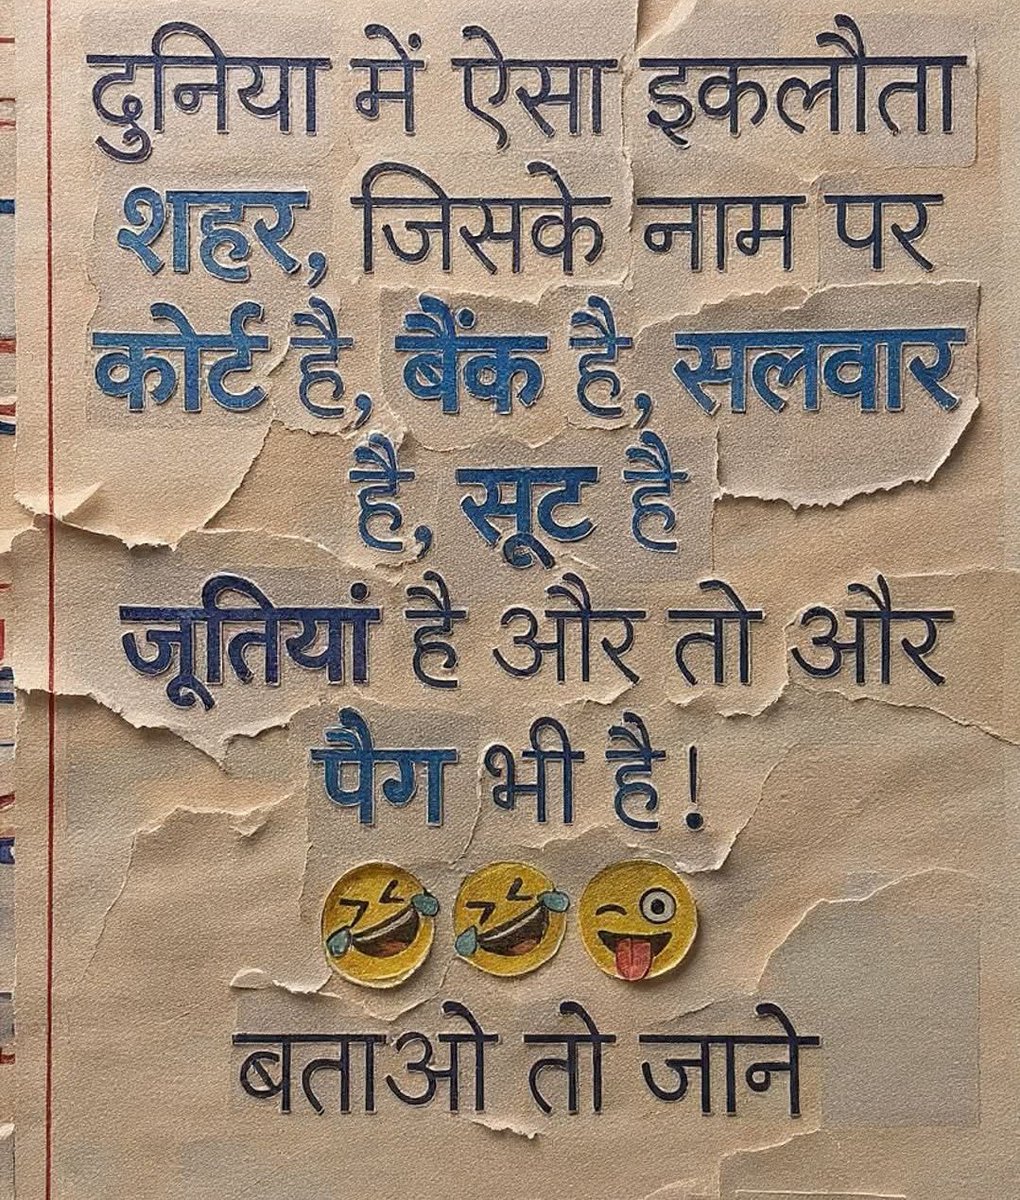 दुनिया में ऐसा इकलौता
शहर, जिसके नाम पर
कोर्ट है, बैंक है, सलवार
है, सूट है
जूतियां है और तो और
पैग भी है!
🤣🤣😜
बताओ तो जाने